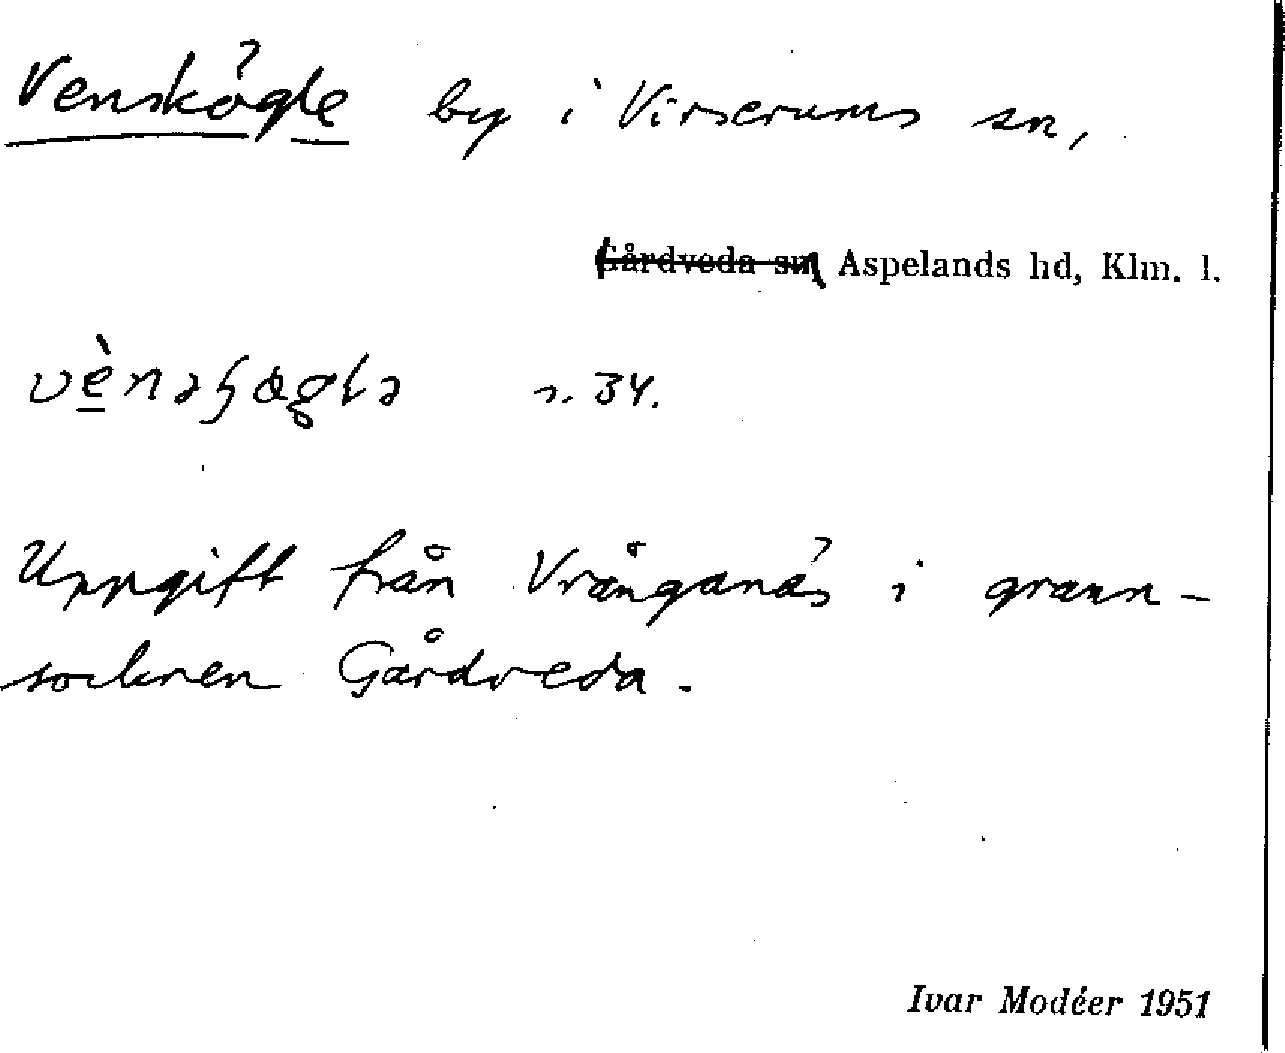 Venskögle by i Virserums sn,
Gårdveda sn, Aspelands hd, Klm. l.
s. 34.
Uppgift från Vrånganäs i grann-
socknen Gårdveda.
Ivar Modéer 1951